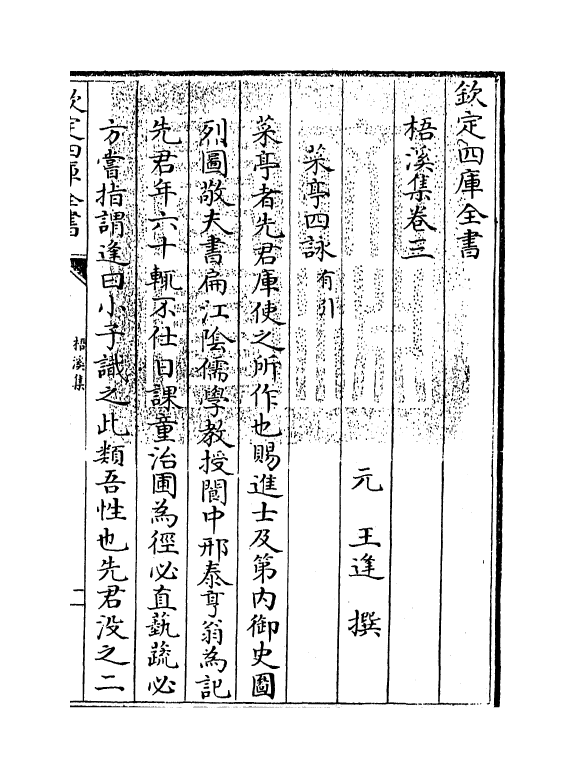 欽定四庫全書
梧溪集卷三
元 王逢 撰
菜亭四詠有引
菜亭者先君庫使之所作也賜進士及第內御史圖
烈圖敬夫書扁江陰儒學教授閬中邢泰亨翁為記
先君年六十輒不仕日課童治圃為徑必直蓺蔬必
方嘗指謂逢曰小子識之此類吾性也先君沒之二
欽定四庫全書
梧溪集